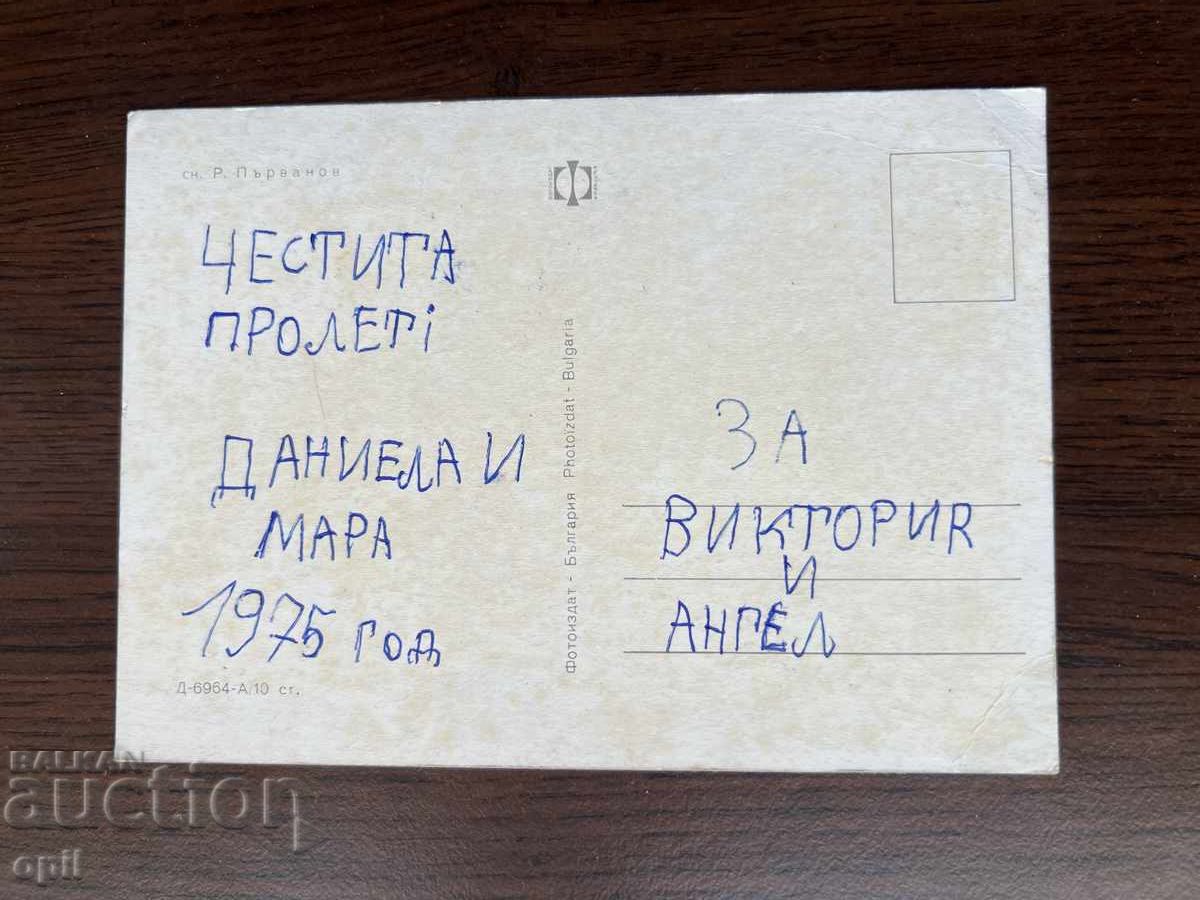 сн. Р. Първанов
ЧЕСТИТА
ПРОЛЕТ!
ДАНИЕЛА И
МАРА
1975 год
Д-6964-А/10 ст.
Фотоиздат - България Photoizdat - Bulgaria
ЗА
ВИКТОРИЯ
И
АНГЕЛ
BALKAN
auction
opil